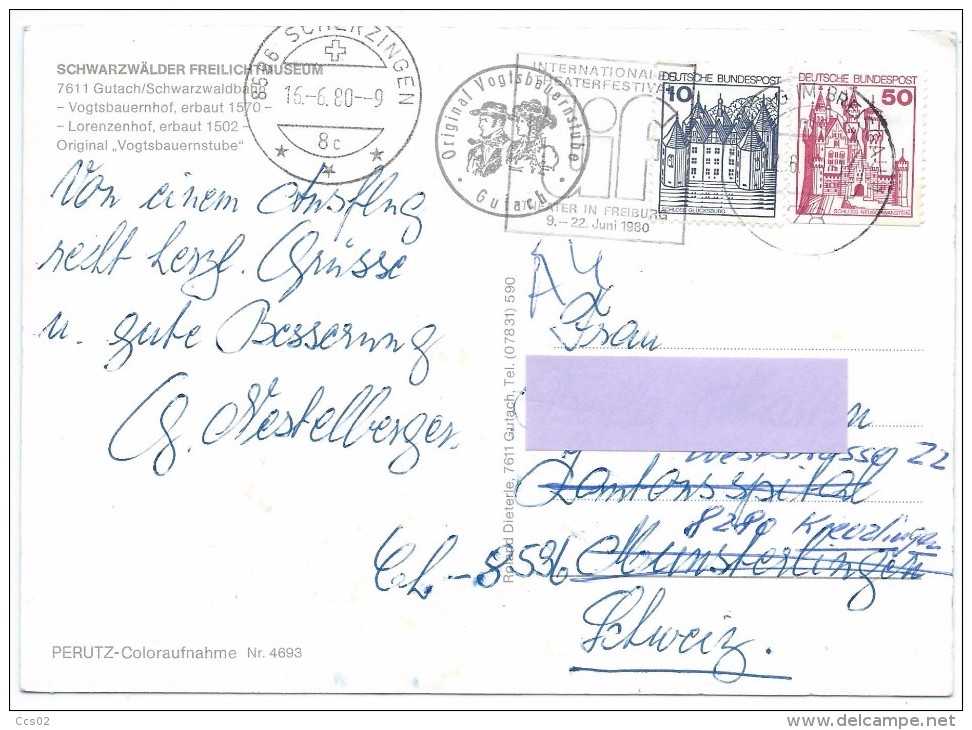 SCHWARZWÄLDER FREILICHTMUSEUM
7611 Gutach/Schwarzwaldbahn
– Vogtsbauernhof, erbaut 1570 –
– Lorenzenhof, erbaut 1502 –
Original „Vogtsbauernstube"
8596 SCHERZINGEN
16.-6.80.-9
8c
Original Vogtsbauernstube
Gutach
INTERNATIONAL
THEATERFESTIVAL
THEATER IN FREIBURG
9.–22. Juni 1980
DEUTSCHE BUNDESPOST
10
SCHLOSS GLÜCKSBURG
DEUTSCHE BUNDESPOST
50
SCHLOSS NEUSCHWANSTEIN
Von einem Ausflug
recht herzl. Grüsse
u. gute Besserung
G. Nestelberger
Roland Dieterle, 7611 Gutach, Tel. (07831) 590
Frau
22
Kantonsspital
8280 Kreuzlingen
Ch.-8596 Münsterlingen
Schweiz.
PERUTZ-Coloraufnahme Nr. 4693
Ccs02
delcampe.net